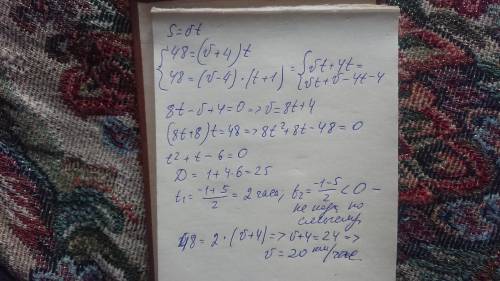 S=vt
{48=(v+4)t
{48=(v-4)·(t+1) = {vt+4t=
{vt+v-4t-4
8t-v+4=0 => v=8t+4
(8t+8)t=48 => 8t²+8t-48=0
t²+t-6=0
D=1+4·6=25
t₁=(-1+5)/2=2 часа, t₂=(-1-5)/2<0 -
не подх по
смыслу,
48=2·(v+4) => v+4=24 =>
v=20 км/час.